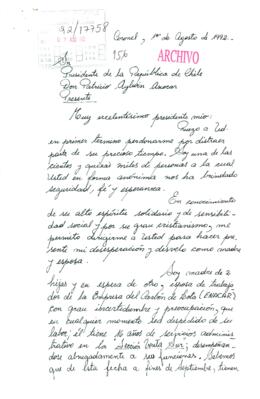 92/17758
Coronel, 1º de Agosto de 1992.-
ARCHIVO
Presidente de la República de Chile
Don Patricio Aylwin Azocar
Presente
Muy excelentísimo presidente mío:
Ruego a Ud.
en primer termino perdonarme por distraer
parte de su precioso tiempo. Soy una de las
cientos y quizás miles de personas a la cual
Usted en forma anónima nos ha brindado
seguridad, fé y esperanza.
En conocimiento
de su alto espíritu solidario y de sensibili-
dad social y por su gran cristianismo, me
permito dirigirme a usted para hacer pre-
sente mi desesperación y dolor como madre
y esposa.
Soy madre de 2
hijos y en espera de otro, esposa de trabaja-
dor de la Empresa del Carbón de Lota (ENACAR)
con gran incertidumbre y preocupación, que
en cualquier momento sea despedido de su
labor, él tiene 16 años de servicios adminis-
trativo en la Sección Venta Sur; desempeñan-
dose abnegadamente a sus funciones. Sabemos
que de esta fecha a fines de Septiembre, tienen